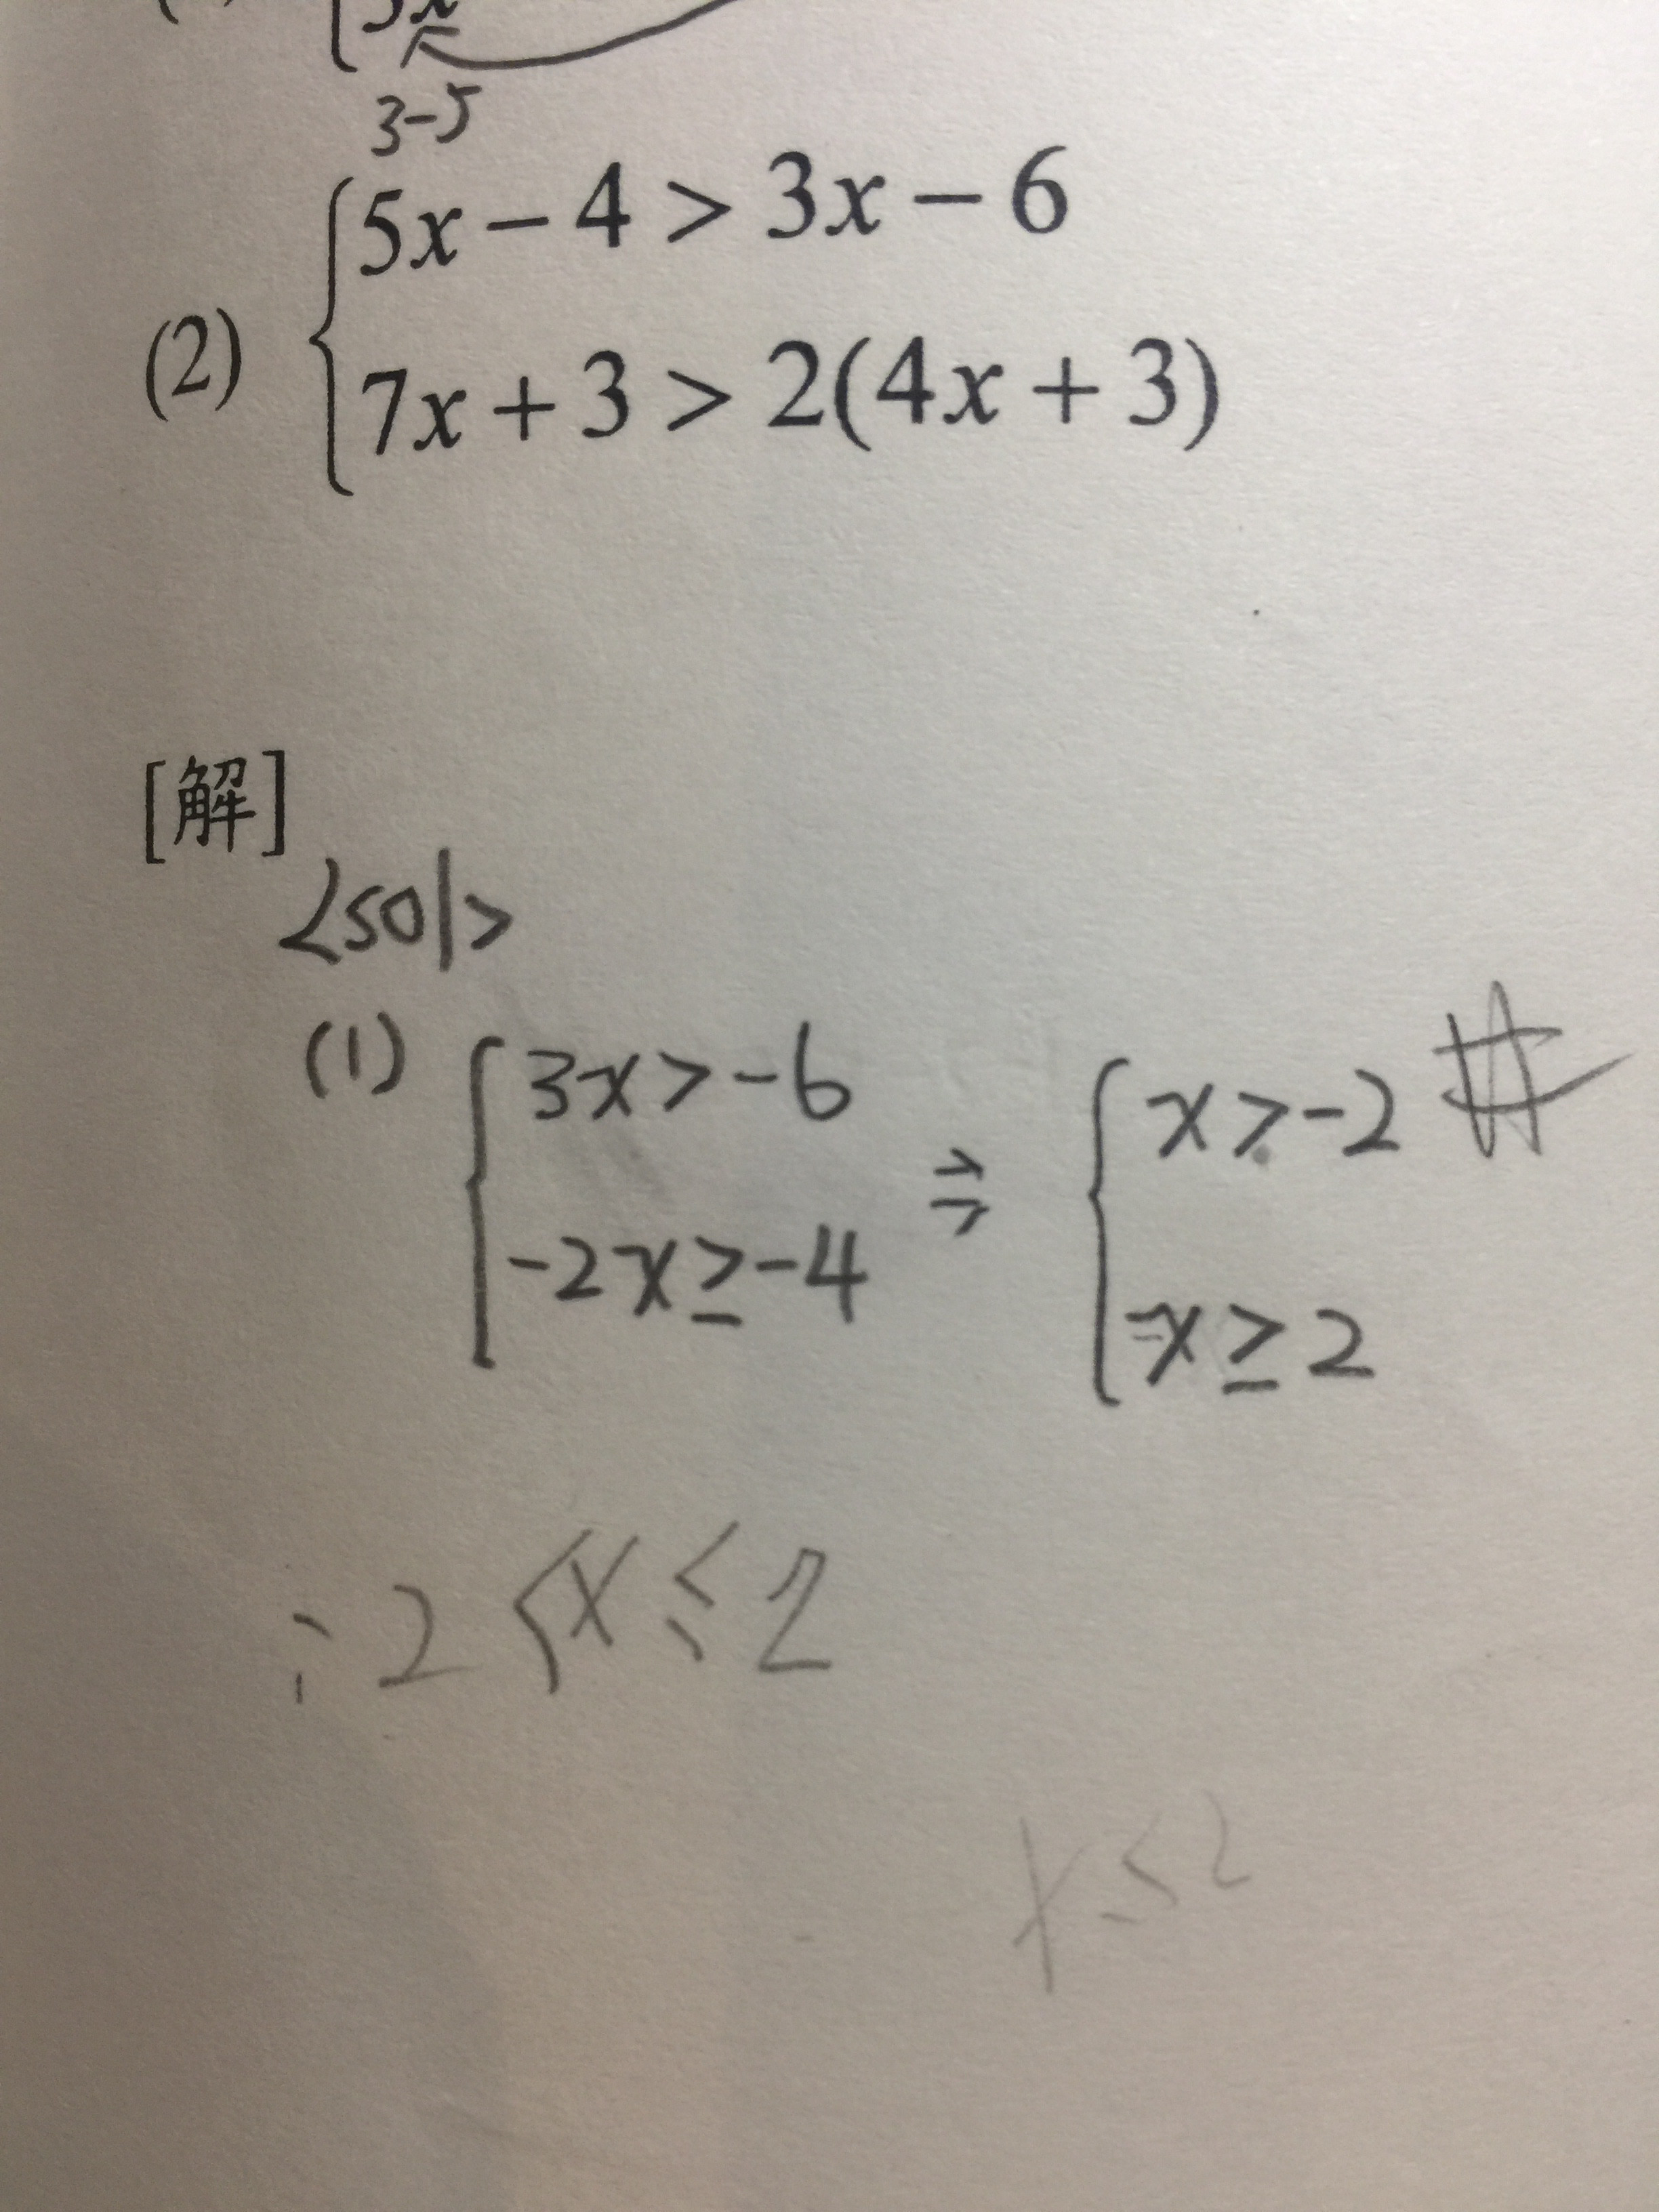 3-5
(2) { 5x - 4 > 3x - 6
7x + 3 > 2(4x + 3)
[解]
<sol>
(1) { 3x > -6 ⇒ { x > -2 #
-2x ≥ -4 -x ≥ 2
∴ 2 < x ≤ 2
x ≤ 2